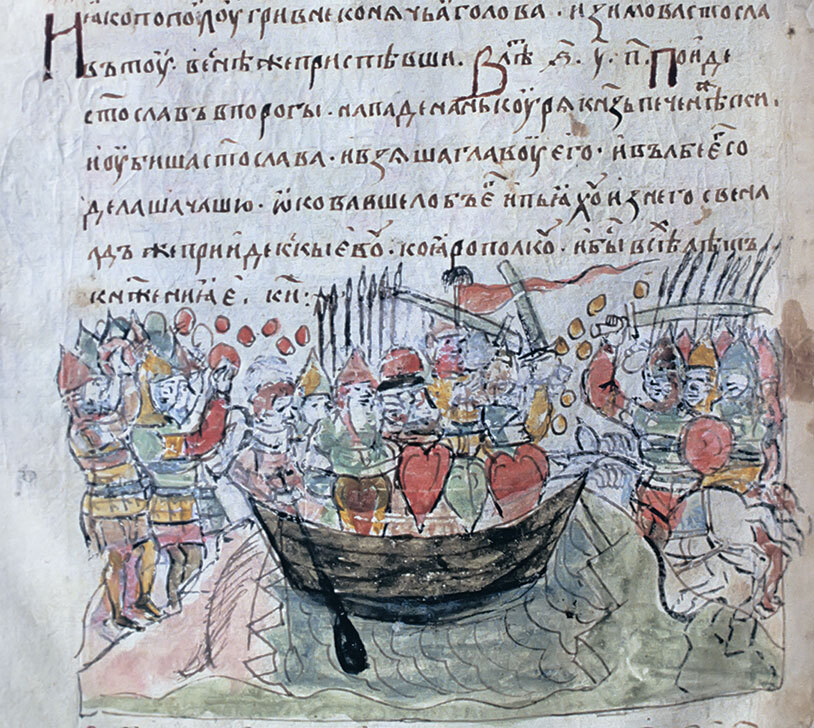 Ꙗко по полоу гривне конѧ чьꙗ голова · и зимова ст҃ославъ
въ тоу · весне же приспѣвши · В лѣⷮ · ѕ҃ · у҃ · п҃ Поиде
ст҃ославъ в порогы · нападе на нь коурѧ кн҃зь печенѣⷤски ·
и оубиша ст҃ослава · и взѧша главоу его · и въ лбе еⷢ со
делаша чашю · ѡковавше лобъ еⷢ и пьꙗхоⷹ из него свена
лдъ же прииде къ кыевоⷹ · ко ꙗрополкоⷹ · и быⷭ всѣⷯ лѣтъ
кнѧжениꙗ еⷢ · к҃и :·